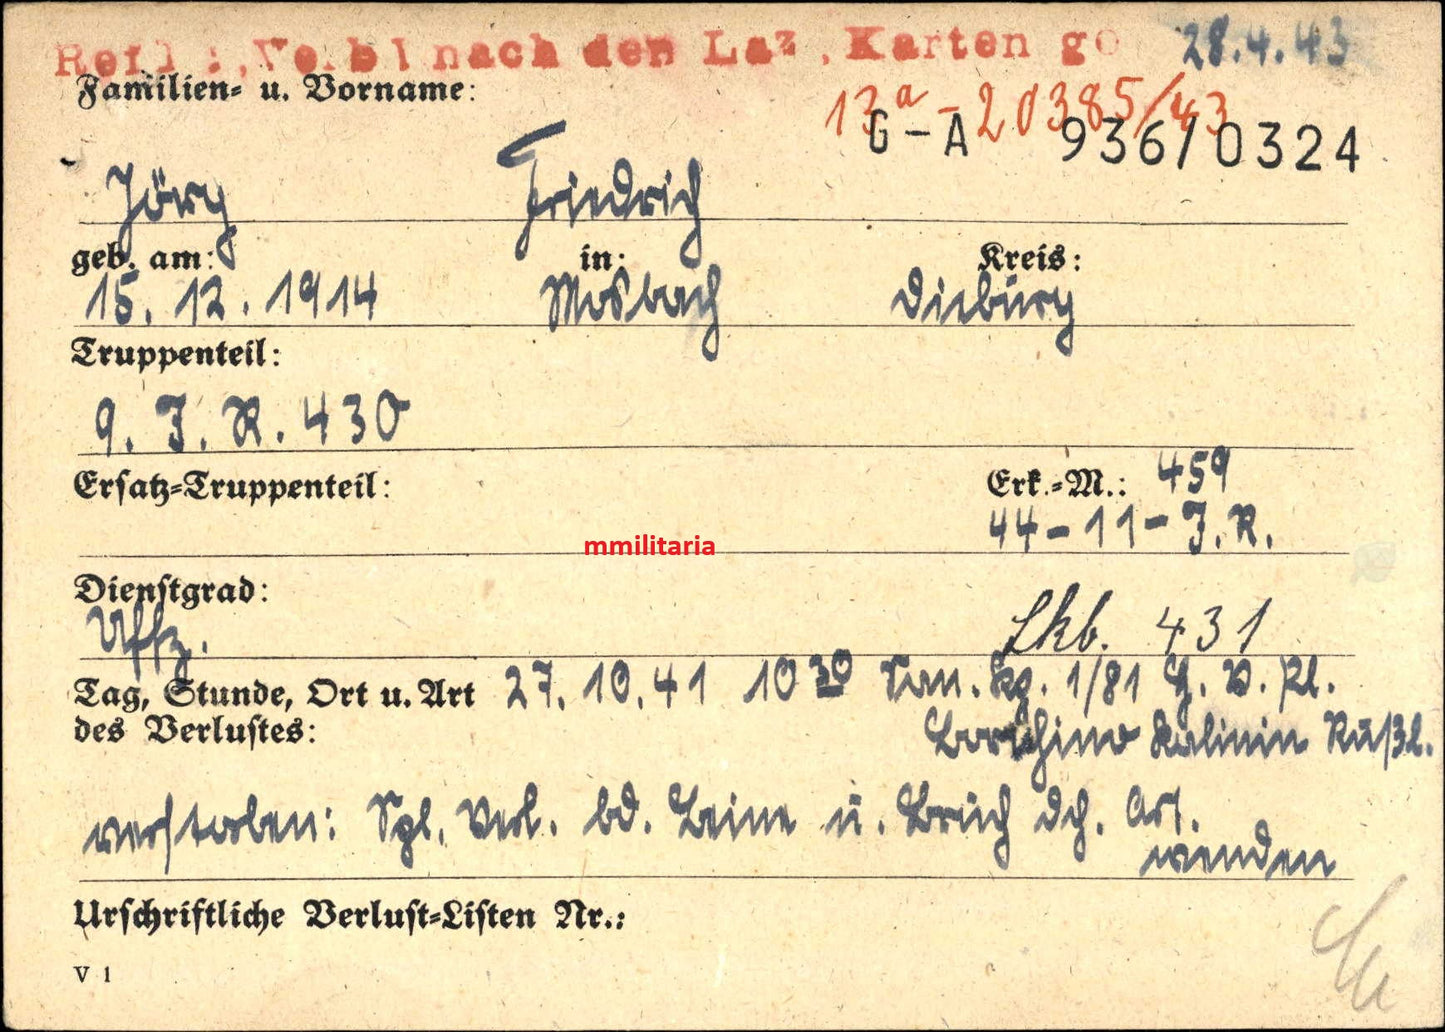 nach den Laz., Karten 28.4.43
Familien= u. Vorname:
13a-20385/43
G-A 936/0324
Jörg Friedrich
geb. am: in: Kreis:
15. 12. 1914 Mosbach Dieburg
Truppenteil:
9. J. R. 430
Ersatz=Truppenteil: Erk.=M.: 459
44-11-J.R.
mmilitaria
Dienstgrad:
Uffz. Lkb. 431
Tag, Stunde, Ort u. Art 27. 10. 41 10 30 San. Kp. 1/81 H. V. Pl.
des Verlustes: Kalinin Rußl.
verstorben: Spl. Verl. bd. Beine u. Bruch dch. Art.
wenden
Urschriftliche Verlust=Listen Nr.:
V 1